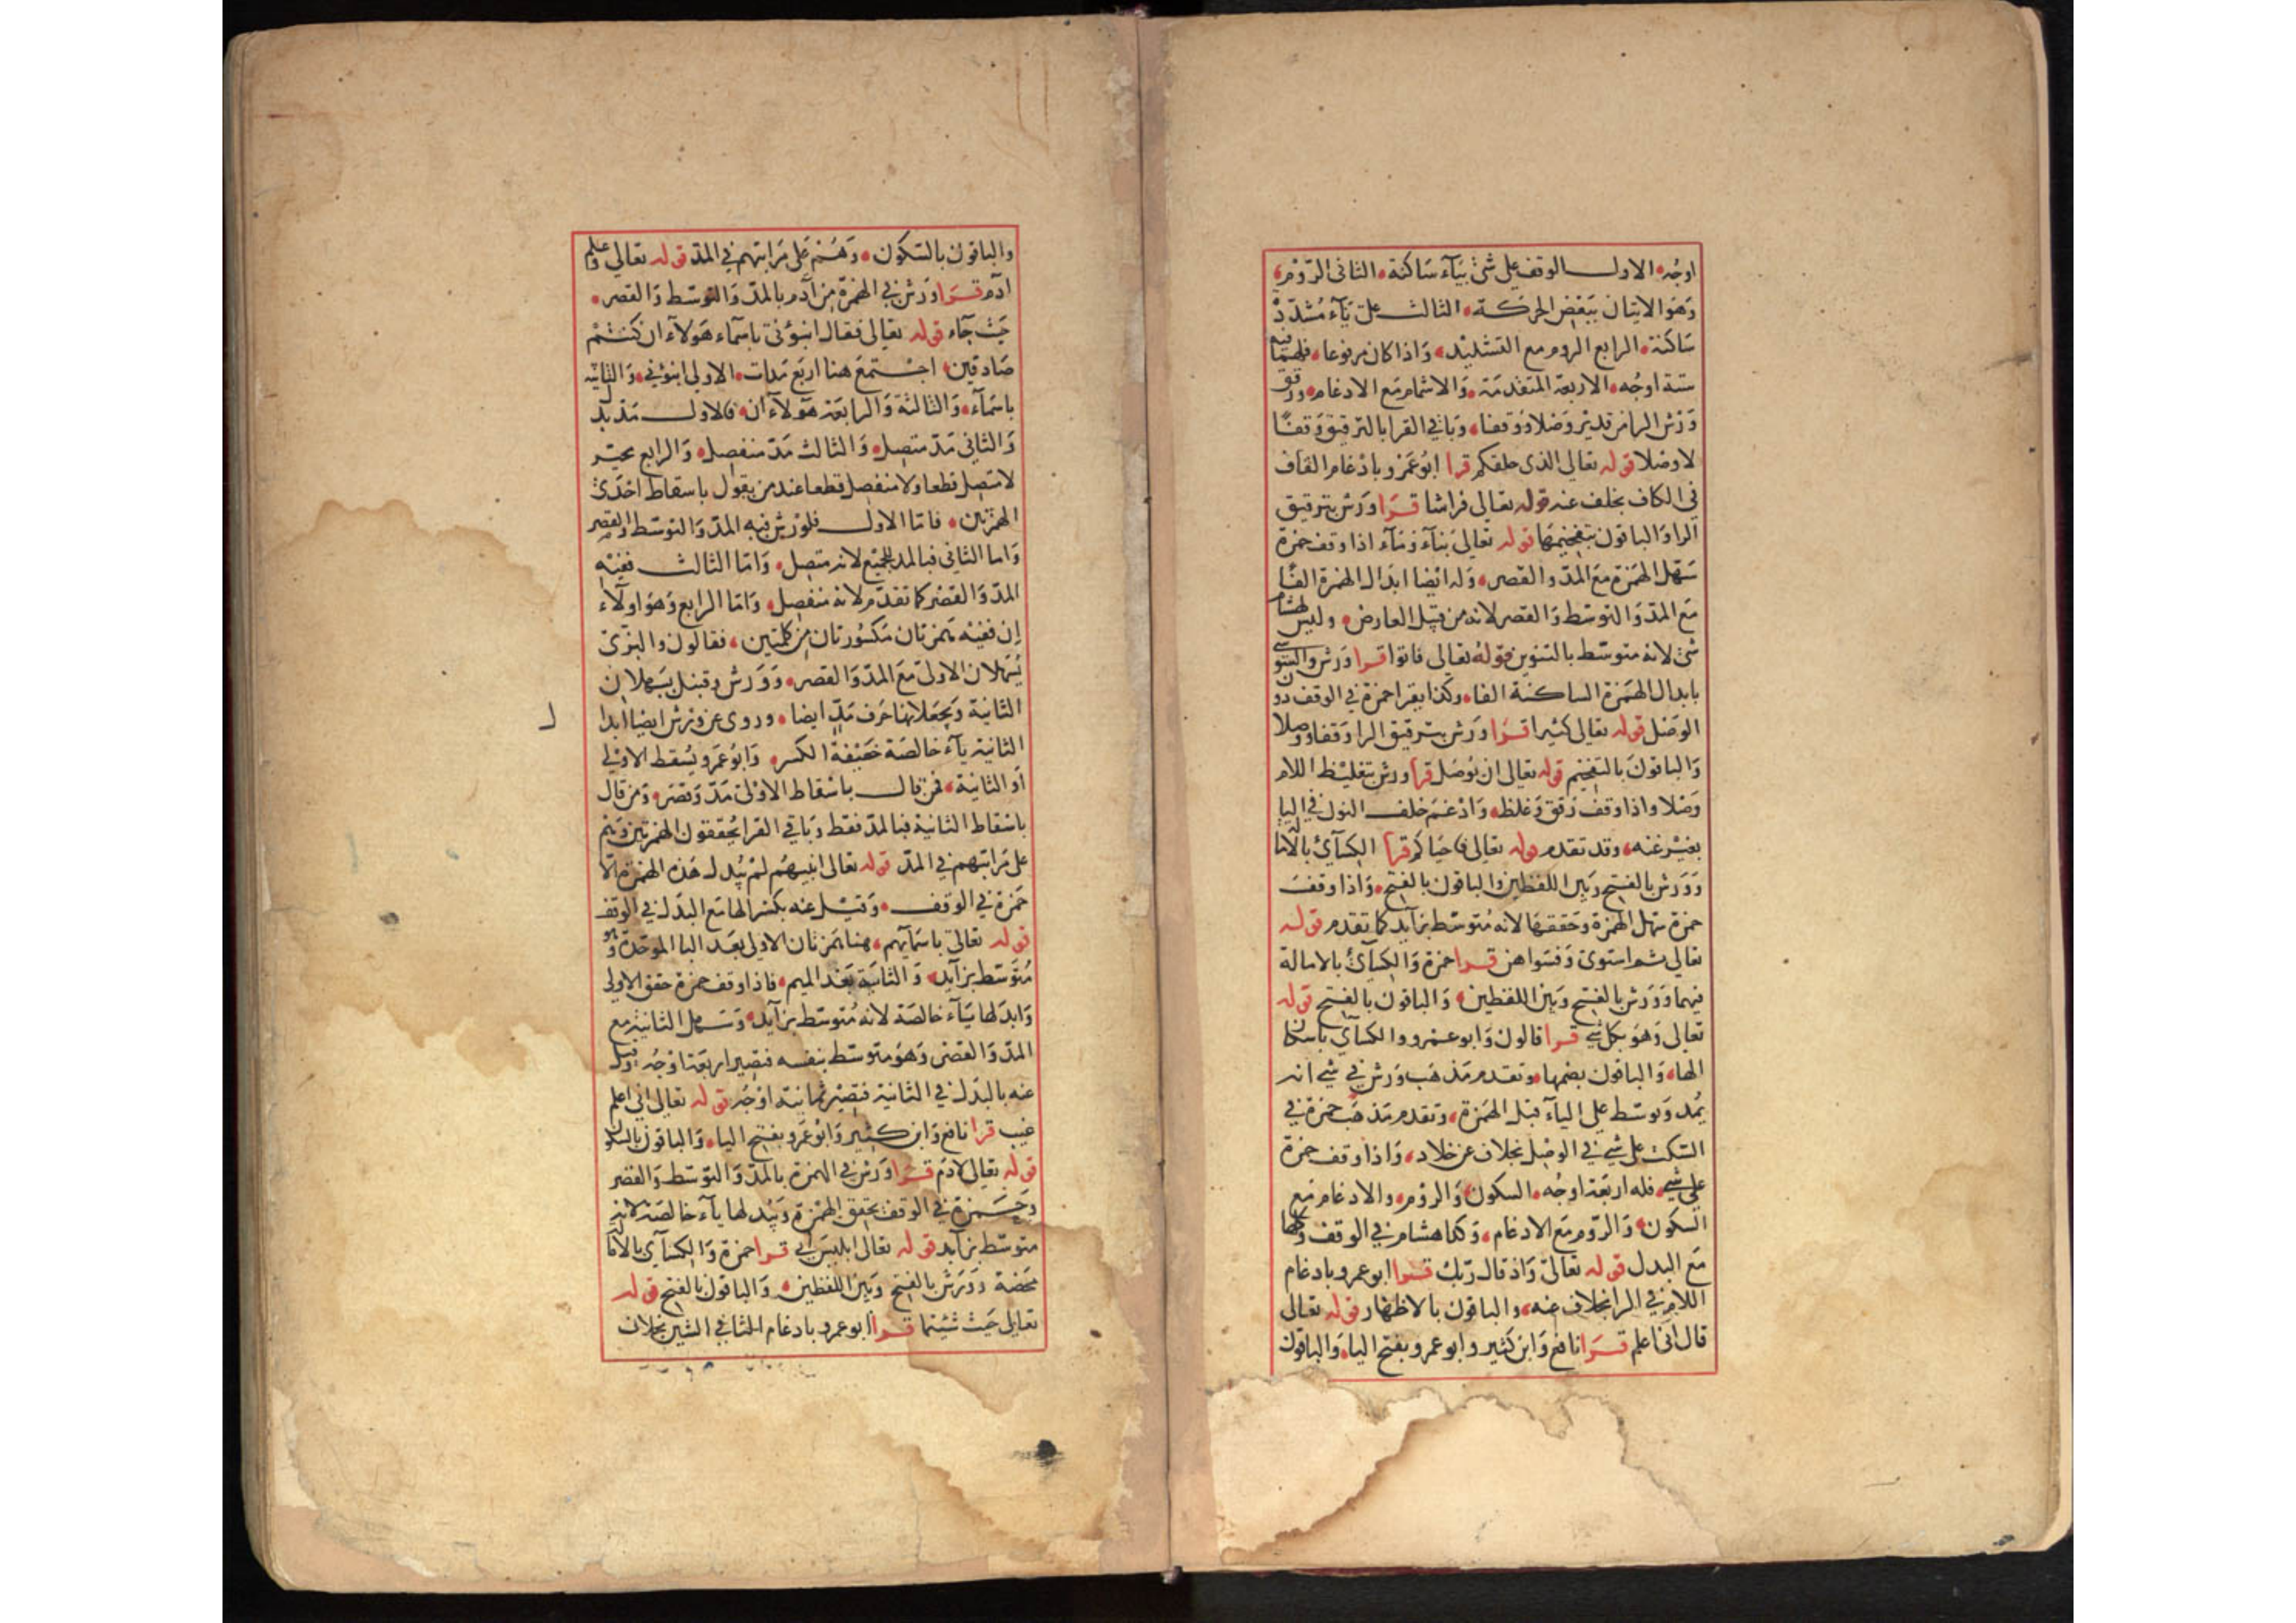 اوجه الاول الوقف على شئ بياء ساكنة الثانى الروم
وهو الاتيان ببعض الحركة الثالث على ياء مشدد
ساكنة الرابع الروم مع التشديد واذا كان مرفوعا
ستة اوجه الاربعة المتقدمة والاشمام مع الادغام ورقق
ورش الرا من قدير وصلا ووقفا وباقي القرا بالترقيق وقفا
لا وصلا قوله تعالى الذى خلقكم قرا ابوعمرو بادغام القاف
في الكاف بخلف عنه قوله تعالى فراشا قرا ورش بترقيق
الرا والباقون بتفخيمها قوله تعالى بناء وماء اذا وقف حمزة
سهل الهمزة مع المد والقصر وله ايضا ابدال الهمزة الفا
مع المد والتوسط والقصر لانه من قبيل العارض وليس لهشام
شئ لانه متوسط بالتنوين قوله تعالى فاتوا قرا ورش والسوسي
بابدال الهمزة الساكنة الفا وكذا يقرا حمزة في الوقف دون
الوصل قوله تعالى كثيرا قرا ورش بترقيق الرا وقفا ووصلا
والباقون بالتفخيم قوله تعالى ان يوصل قرا ورش بتغليظ اللام
وصلا واذا وقف رقق وغلظ وادغم خلف النون في اليا
بغير غنه وقد تقدم قوله تعالى فاحياكم قرا الكسآئ بالاما
وورش بالفتح وبين اللفظين والباقون بالفتح واذا وقف
حمزة سهل الهمزة وحققها لانه متوسط بزآيد كما تقدم قوله
تعالى ثم استوى وفسواهن قرا حمزة والكسآئ بالامالة
فيهما وورش بالفتح وبين اللفظين والباقون بالفتح قوله
تعالى وهو بكل شي قرا قالون وابو عمرو والكسآي باسكان
الها والباقون بضمها وتقدم مذهب ورش في شي انه
يمد ويوسط على اليآء قبل الهمزة وتقدم مذهب حمزة في
السكت على شي في الوصل بخلاف عن خلاد واذا وقف حمزة
على شي فله اربعة اوجه السكون والروم والادغام مع
السكون والروم مع الادغام وكذا هشام في الوقف
مع البدل قوله تعالى واذ قال ربك قرا ابو عمرو بادغام
اللام في الرا بخلاف عنه والباقون بالاظهار قوله تعالى
قال انى اعلم قرا نافع وابن كثير وابو عمرو بفتح اليا والباقون
والباقون بالسكون وهم على مراتبهم في المد قوله تعالى وعلم
آدم قرا ورش في الهمزة من آدم بالمد والتوسط والقصر
حيث جاء قوله تعالى فقال انبؤنى باسماء هولآء ان كنتم
صادقين اجتمع هنا اربع مدات الاولى انبؤني والثانية
باسماء والثالثة والرابعة هولآء ان فالاول مد بدل
والثاني مد متصل والثالث مد منفصل والرابع
لا متصل قطعا ولا منفصل قطعا عند من يقول باسقاط احدى
الهمزتين فاما الاول فلورش فيه المد والتوسط والقصر
واما الثاني فبالمد للجميع لانه متصل واما الثالث ففيه
المد والقصر كما تقدم لانه منفصل واما الرابع وهو اولآء
ان ففيه همزتان مكسورتان من كلمتين فقالون والبزى
يسهلان الاولى مع المد والقصر وورش وقنبل يسهلان
الثانية ويجعلانها حرف مد ايضا وروى عن ورش ايضا ابدا
الثانية يآء خالصة خفيفة الكسر وابو عمرو يسقط الاولى
او الثانية فمن قال باسقاط الاولى مد وقصر ومن قال
باسقاط الثانية فبالمد فقط وباقي القرا يحققون الهمزتين وهم
على مراتبهم في المد قوله تعالى انبيهم لم يبدل هذه الهمزة الا
حمزة في الوقف وقيل عنه بكسر الها مع البدل في الوقف
قوله تعالى باسمآيهم هنا همزتان الاولى بعد البا الموحدة وهو
متوسط بزآيد والثانية بعد الميم فاذا وقف حمزة حقق الاولى
وابدلها يآء خالصة لانه متوسط بزآيد وسهل الثانية مع
المد والقصر وهو متوسط بنفسه فتصير اربعة اوجه وقيل
عنه بالبدل في الثانية فتصير ثمانية اوجه قوله تعالى انى اعلم
غيب قرا نافع وابن كثير وابو عمرو بفتح اليا والباقون بالسكون
قوله تعالى لادم قرا ورش في الهمزة بالمد والتوسط والقصر
وحمزة في الوقف يحقق الهمزة ويبدلها يآء خالصة لانه
متوسط بزآيد قوله تعالى ابليس ابى قرا حمزة والكسآي بالاما
محضة وورش بالفتح وبين اللفظين والباقون بالفتح قوله
تعالى حيث شئتما قرا ابو عمرو بادغام الثا في الشين بخلاف